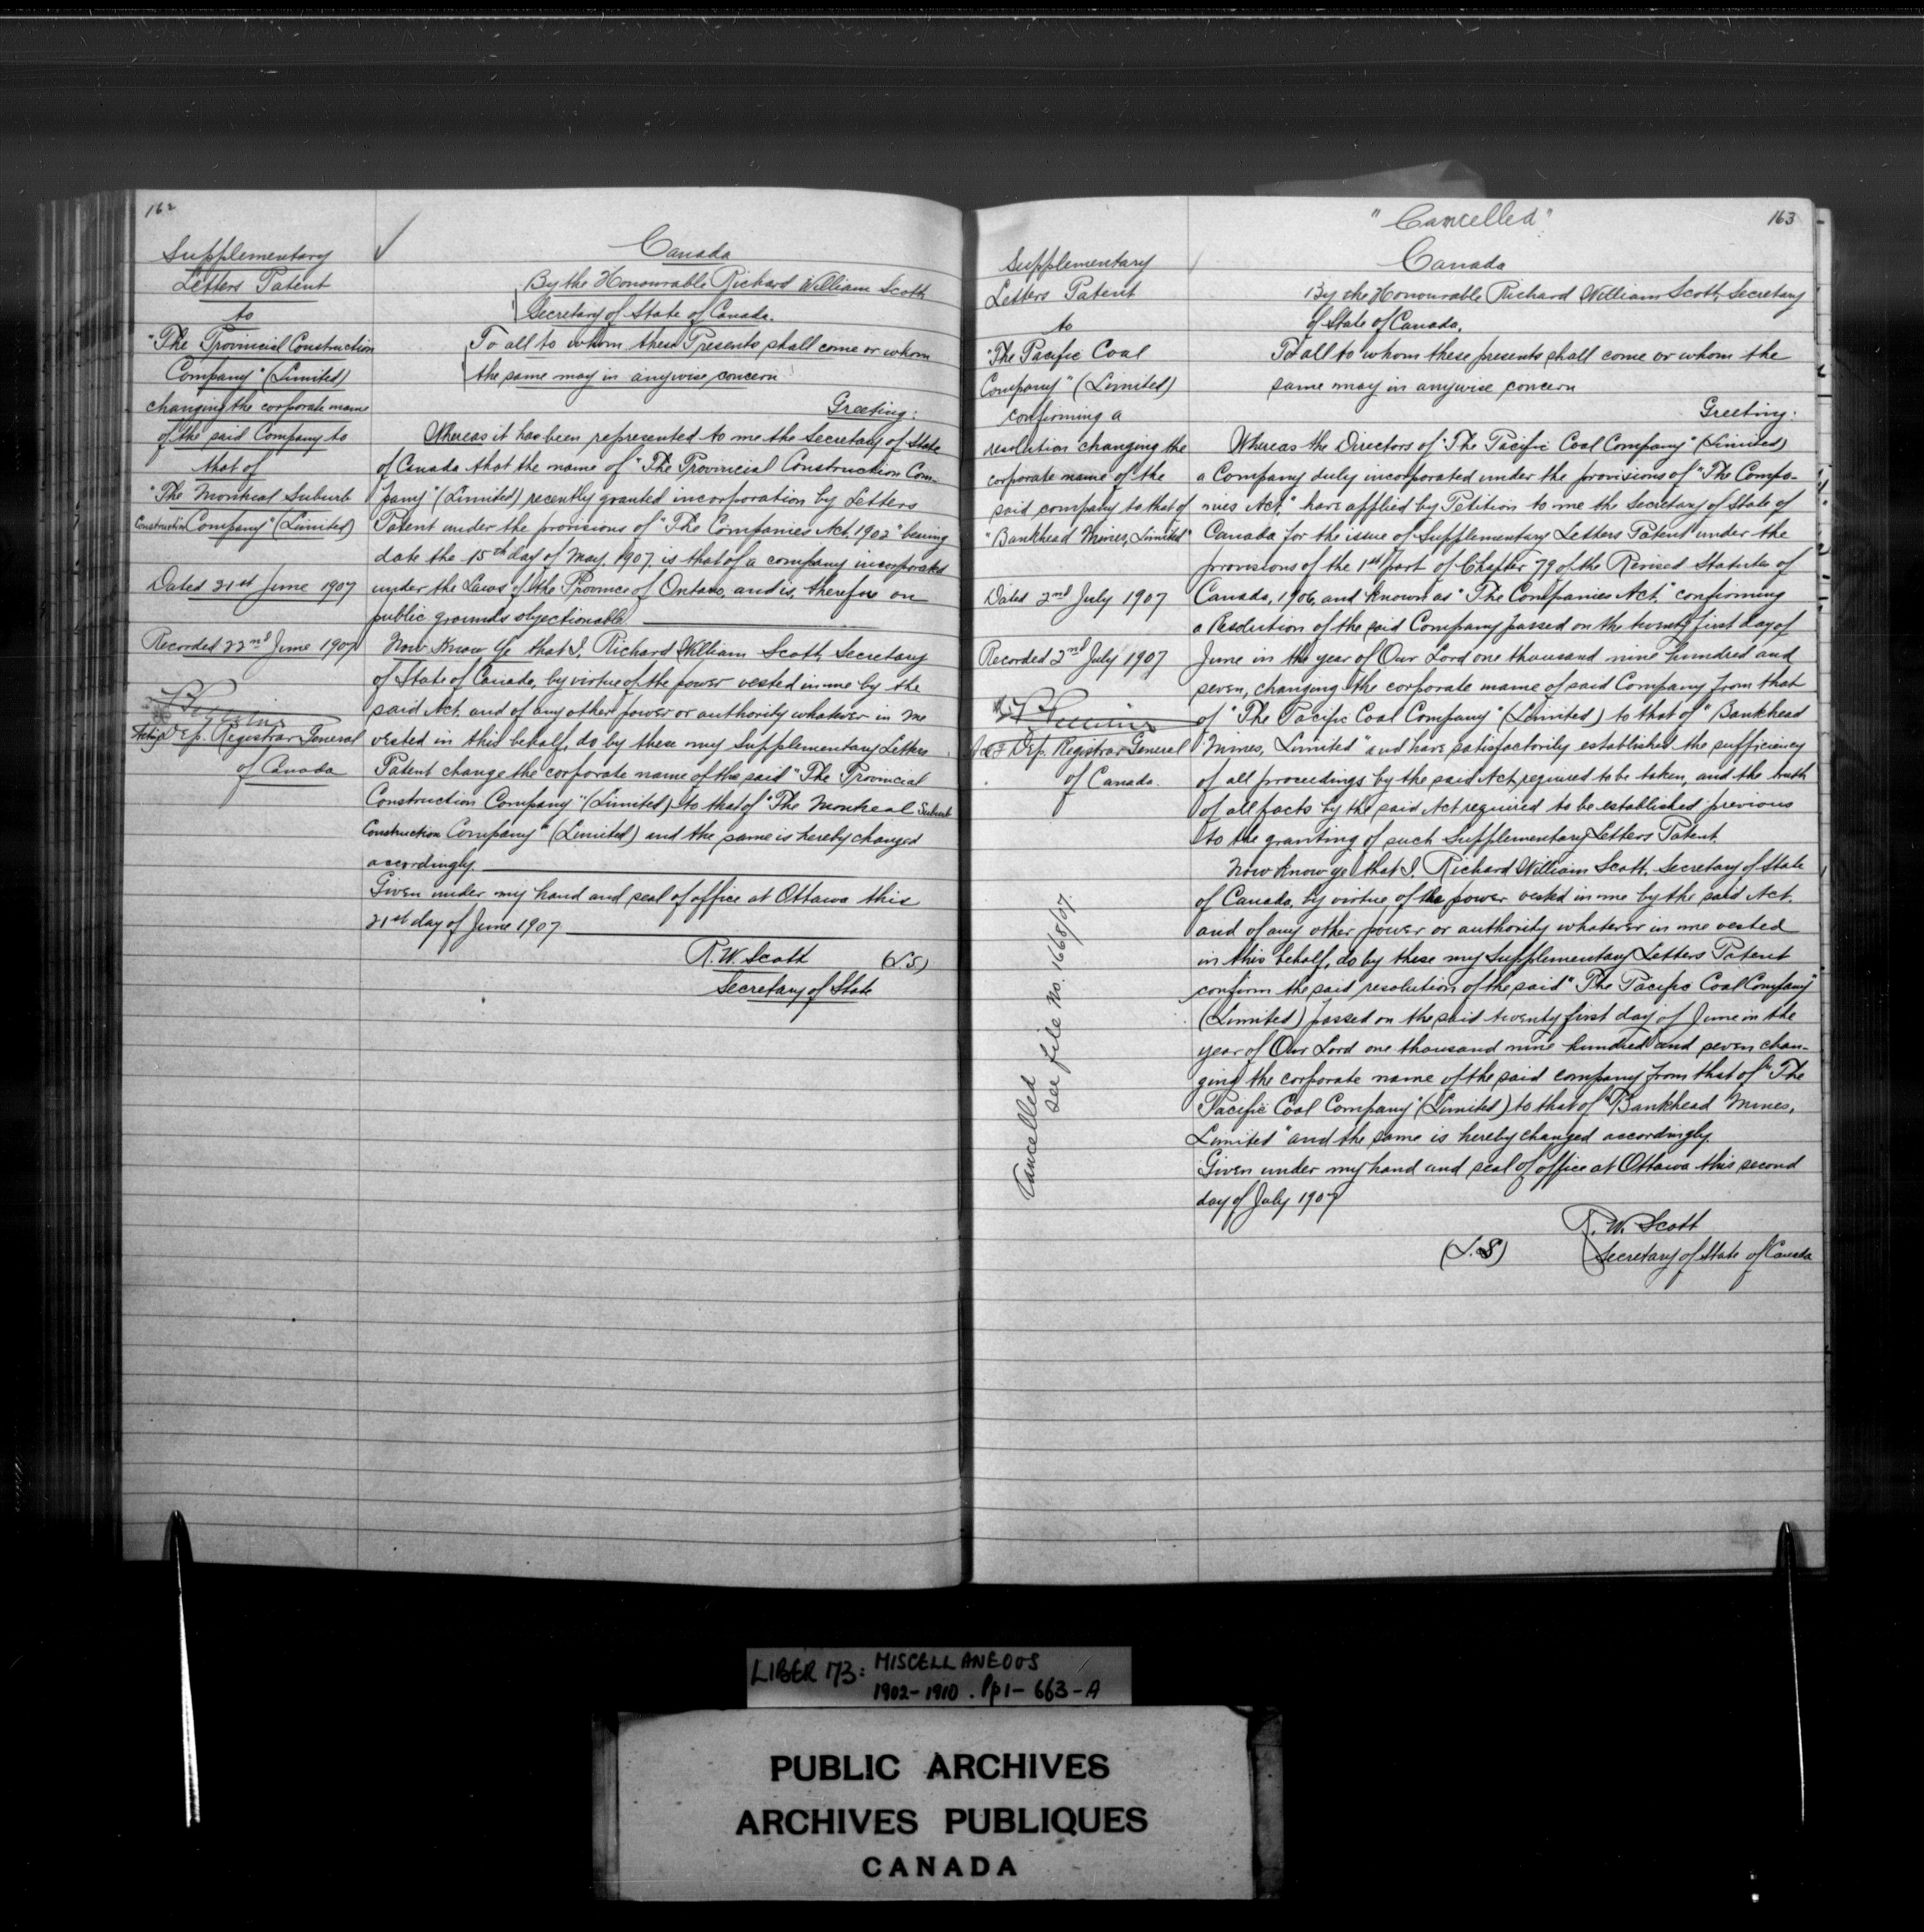 162
Supplementary
Letters Patent
to
"The Provincial Construction
Company" (Limited)
changing the corporate name
of the said Company to
that of
"The Montreal Suburb
Construction Company" (Limited)
Dated 21st June 1907
Recorded 22nd June 1907
Acting Dep. Registrar General
of Canada
Canada
By the Honourable Richard William Scott,
Secretary of State of Canada.
To all to whom these Presents shall come or whom
the same may in anywise concern
Greeting:
Whereas it has been represented to me the Secretary of State
of Canada that the name of "The Provincial Construction Com-
pany" (Limited) recently granted incorporation by Letters
Patent under the provisions of "The Companies Act, 1902" bearing
date the 15th day of May, 1907, is that of a company incorporated
under the Laws of the Province of Ontario, and is, therefore on
public grounds objectionable.
Now Know Ye that I, Richard William Scott, Secretary
of State of Canada, by virtue of the power vested in me by the
said Act, and of any other power or authority whatever in me
vested in this behalf, do by these my Supplementary Letters
Patent change the corporate name of the said "The Provincial
Construction Company" (Limited) to that of "The Montreal Suburb
Construction Company" (Limited) and the same is hereby changed
accordingly.
Given under my hand and seal of office at Ottawa this
21st day of June 1907
R. W. Scott (LS)
Secretary of State
163
"Cancelled"
Supplementary
Letters Patent
to
"The Pacific Coal
Company" (Limited)
confirming a
resolution changing the
corporate name of the
said company to that of
"Bankhead Mines, Limited"
Dated 2nd July 1907
Recorded 2nd July 1907
Dep. Registrar General
of Canada.
Cancelled
see file No. 1668/07.
Canada
By the Honourable Richard William Scott, Secretary
of State of Canada.
To all to whom these presents shall come or whom the
same may in anywise concern
Greeting:
Whereas the Directors of "The Pacific Coal Company" (Limited)
a Company duly incorporated under the provisions of "The Compa-
nies Act," have applied by Petition to me the Secretary of State of
Canada for the issue of Supplementary Letters Patent under the
provisions of the 1st part of Chapter 79 of the Revised Statutes of
Canada, 1906, and known as "The Companies Act," confirming
a Resolution of the said Company passed on the twenty first day of
June in the year of Our Lord one thousand nine hundred and
seven, changing the corporate name of said Company from that
of "The Pacific Coal Company" (Limited) to that of "Bankhead
Mines, Limited" and have satisfactorily established the sufficiency
of all proceedings by the said Act required to be taken, and the truth
of all facts by the said Act required to be established previous
to the granting of such Supplementary Letters Patent.
Now Know ye that I, Richard William Scott, Secretary of State
of Canada, by virtue of the power vested in me by the said Act,
and of any other power or authority whatever in me vested
in this behalf, do by these my Supplementary Letters Patent
confirm the said resolution of the said "The Pacific Coal Company"
(Limited) passed on the said twenty first day of June in the
year of Our Lord one thousand nine hundred and seven chan-
ging the corporate name of the said company from that of "The
Pacific Coal Company" (Limited) to that of "Bankhead Mines,
Limited" and the same is hereby changed accordingly.
Given under my hand and seal of office at Ottawa this second
day of July 1907
R. W. Scott
(L.S) Secretary of State of Canada
LIBER 173: MISCELLANEOUS
1902-1910. Pp1-663-A
PUBLIC ARCHIVES
ARCHIVES PUBLIQUES
CANADA